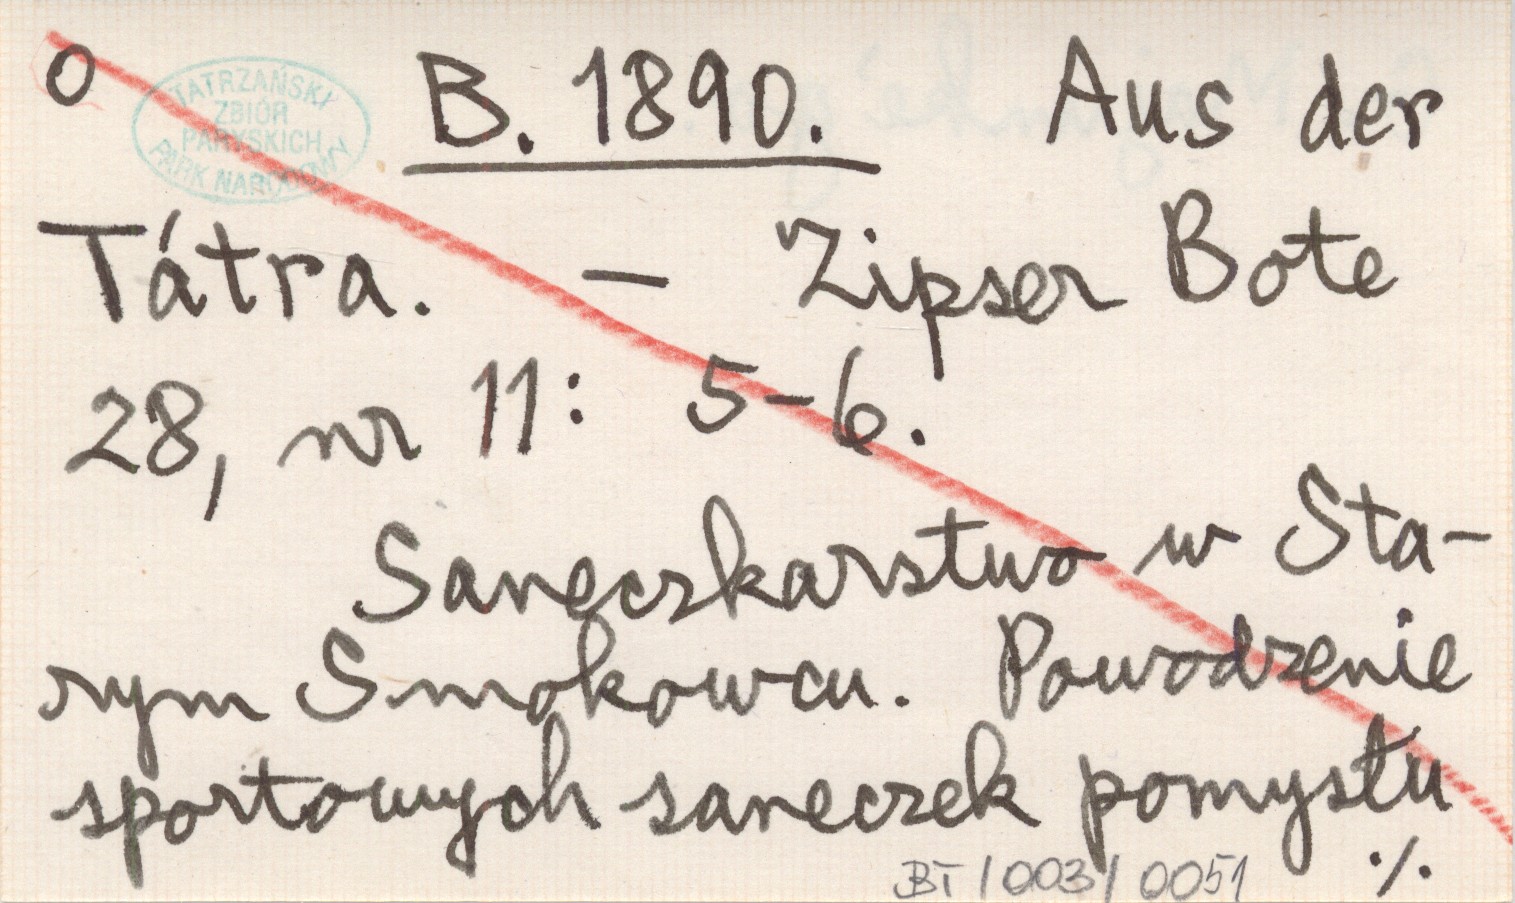 O
TATRZAŃSKI
ZBIÓR
PARYSKICH
PARK NARODOWY
B. 1890. Aus der
Tátra. — Zipser Bote
28, nr 11: 5-6.
Saneczkarstwo w Sta-
rym Smokowcu. Powodzenie
sportowych saneczek pomysłu
./.
BT/003/0051